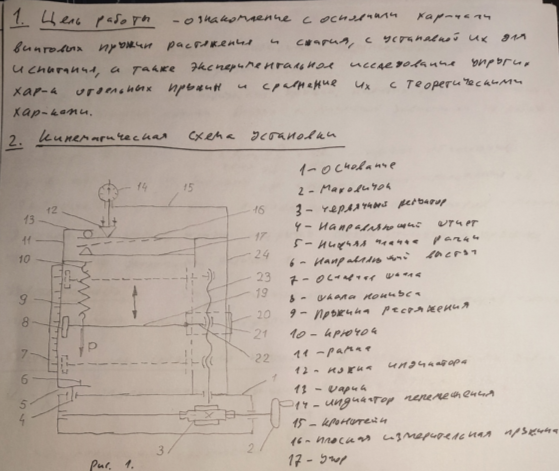 1. Цель работы - ознакомление с основными хар-ками
винтовых пружин растяжения и сжатия, с установкой их для
испытания, а также экспериментальное исследование упругих
хар-к отдельных пружин и сравнение их с теоретическими
хар-ками.
2. Кинематическая схема установки
14
15
12
13
16
11
17
10
24
23
9
19
8
20
21
P
22
7
6
5
1
4
3
2
Рис. 1.
1 - Основание
2 - Маховичок
3 - Червячный редуктор
4 - Направляющий штифт
5 - Нижняя планка рамки
6 - Направляющий
7 - Основная шкала
8 - Шкала нониуса
9 - Пружина растяжения
10 - крючок
11 - рамка
12 - ножка индикатора
13 - шарик
14 - индикатор перемещения
15 - кронштейн
16 - плоская измерительная пружина
17 - Упор